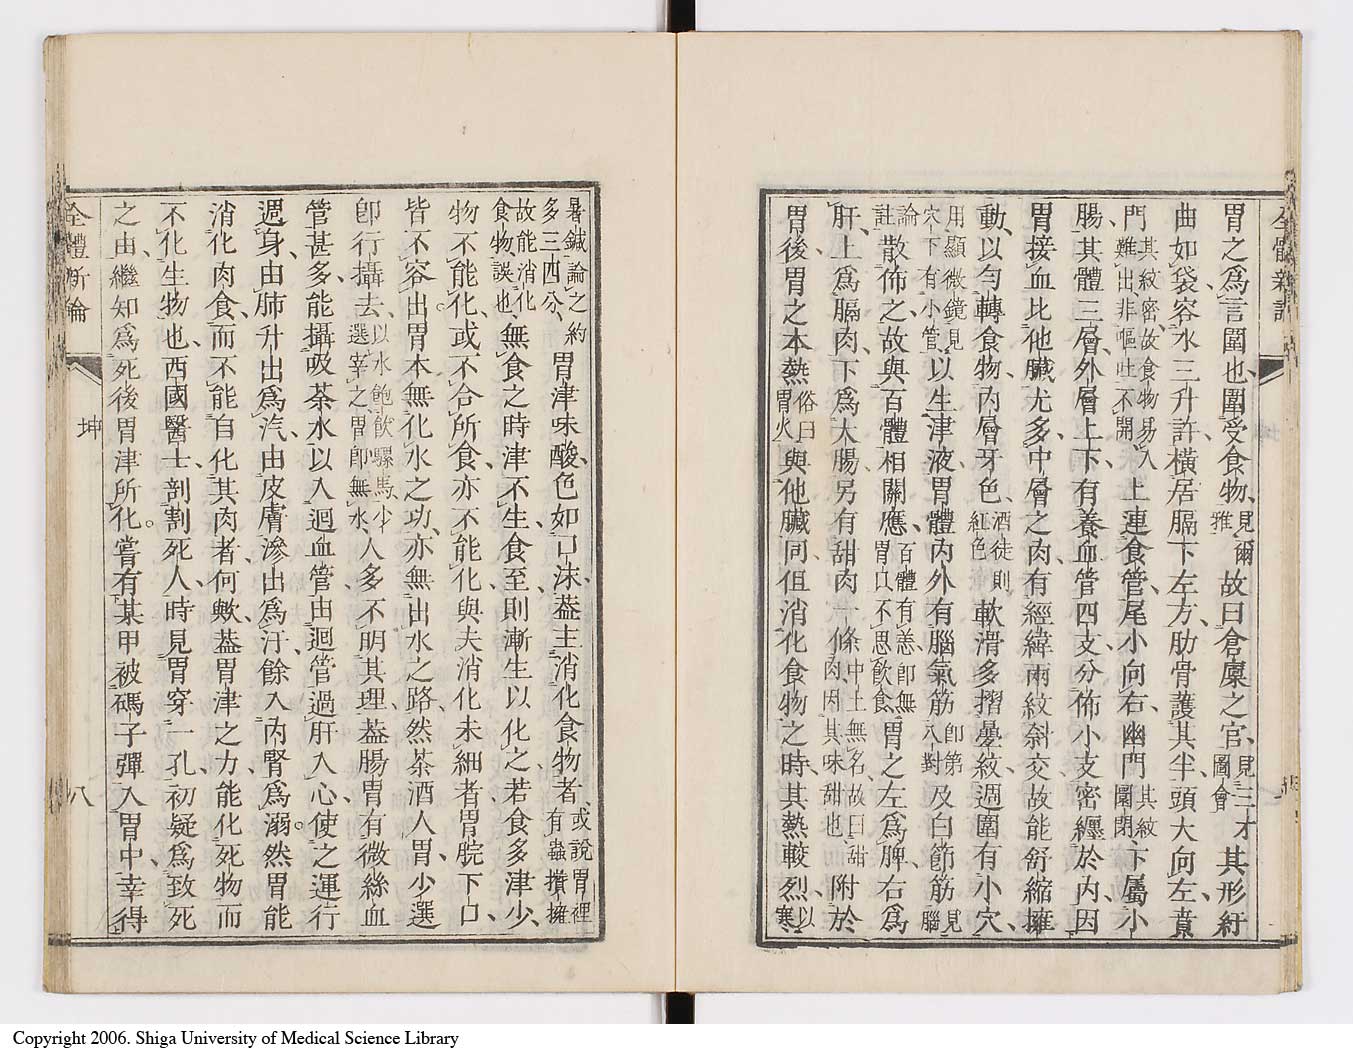 全體新論
胃之爲言圍也圍受食物見爾雅故曰倉廩之官見三才圖會其形紆
曲如袋容水三升許橫居膈下左方肋骨護其半頭大向左賁
門其紋密故食物易入難出非嘔吐不開上連食管尾小向右幽門其紋圍閉下屬小
腸其體三層外層上下有養血管四支分佈小支密纒於內因
胃接血比他臟尤多中層之肉有經緯兩紋斜交故能舒縮擁
動以勻轉食物內層牙色酒徒則紅色軟滑多摺疊紋週圍有小穴
用顯微鏡見穴下有小管以生津液胃體內外有腦氣筋卽第八對及白節筋見腦
論註散佈之故與百體相關應百體有恙卽無胃口不思飲食胃之左爲脾右爲
肝上爲膈肉下爲大腸另有甜肉一條中土無名故曰甜肉因其味甜也附於
胃後胃之本熱俗曰胃火與他臟同但消化食物之時其熱較烈以寒
暑鍼論之約多三四分胃津味酸色如口沫葢主消化食物者或說胃裡有蟲攢擁
故能消化食物誤也無食之時津不生食至則漸生以化之若食多津少
物不能化或不合所食亦不能化與夫消化未細者胃脘下口
皆不容出胃本無化水之功亦無出水之路然茶酒入胃少選
卽行攝去以水飽飲騾馬少選宰之胃卽無水人多不明其理葢腸胃有微絲血
管甚多能攝吸茶水以入迴血管由迴管過肝入心使之運行
週身由肺升出爲汽由皮膚滲出爲汗餘入內腎爲溺。然胃能
消化肉食而不能自化其肉者何歟葢胃津之力能化死物而
不化生物也西國醫士剖割死人時見胃穿一孔初疑爲致死
之由繼知爲死後胃津所化。嘗有某甲被碼子彈入胃中幸得
全體新論
坤
八
Copyright 2006. Shiga University of Medical Science Library